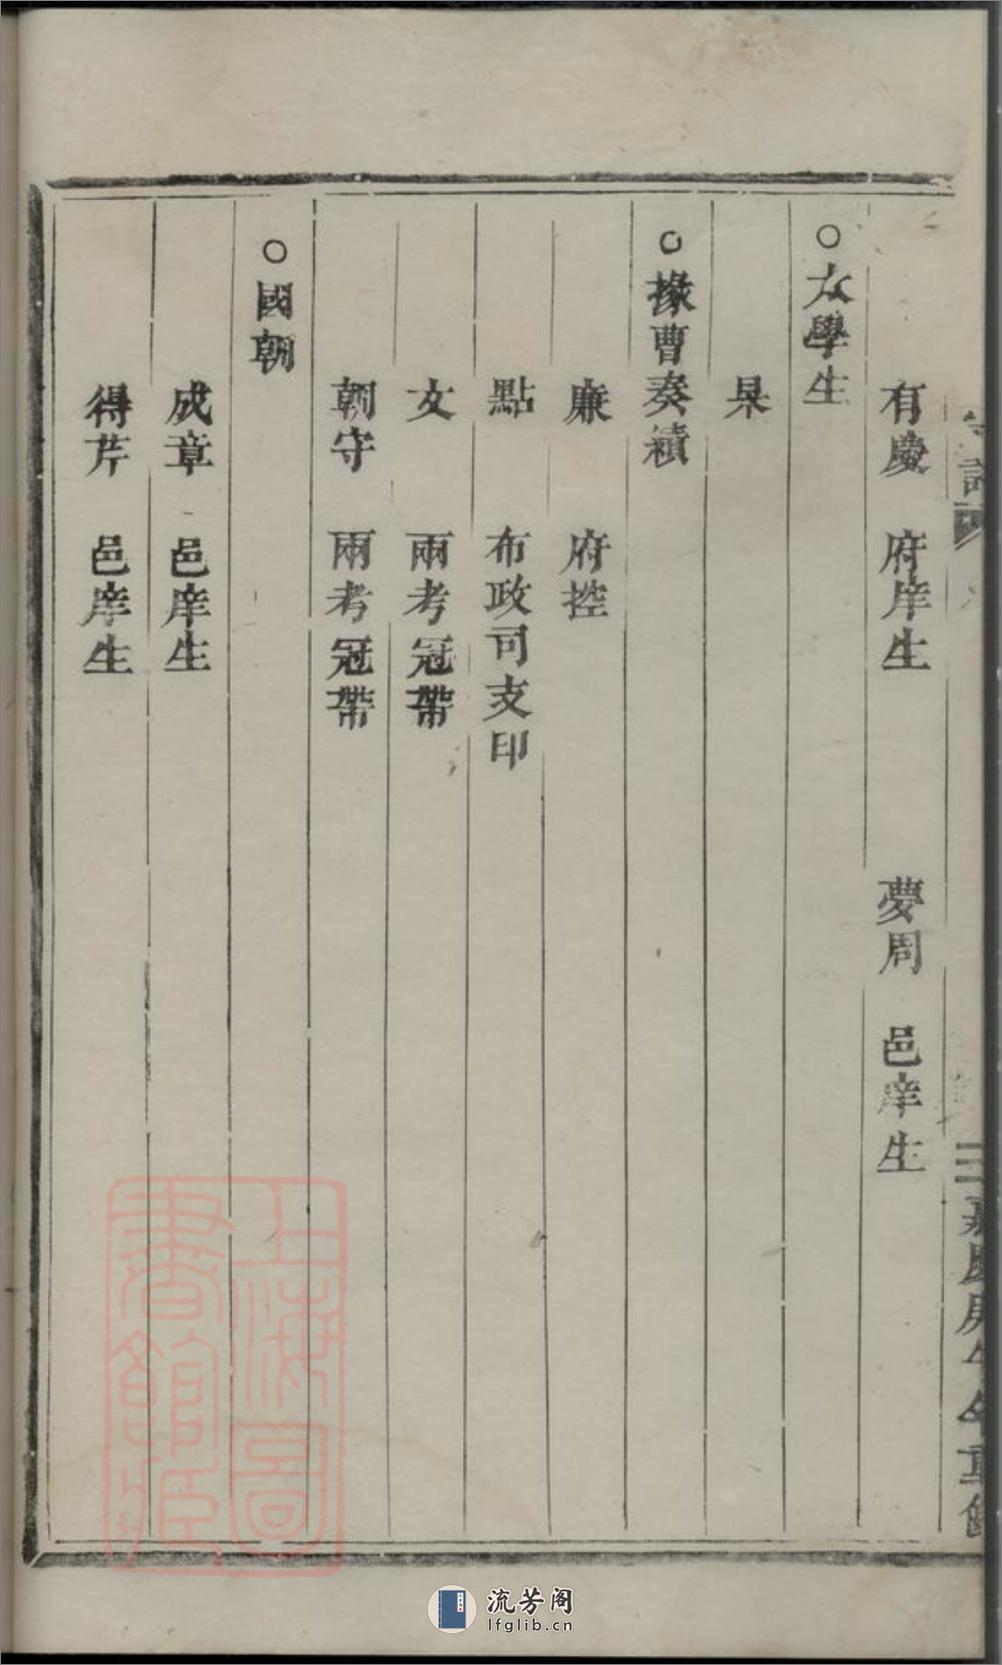 有慶 府庠生 夢周 邑庠生
○太學生
杲
○掾曹奏績
廉 府控
點 布政司支印
文 兩考冠帶
朝守 兩考冠帶
○國朝
成章 邑庠生
得芹 邑庠生
上海圖
書館藏
流芳阁
lfglib.cn